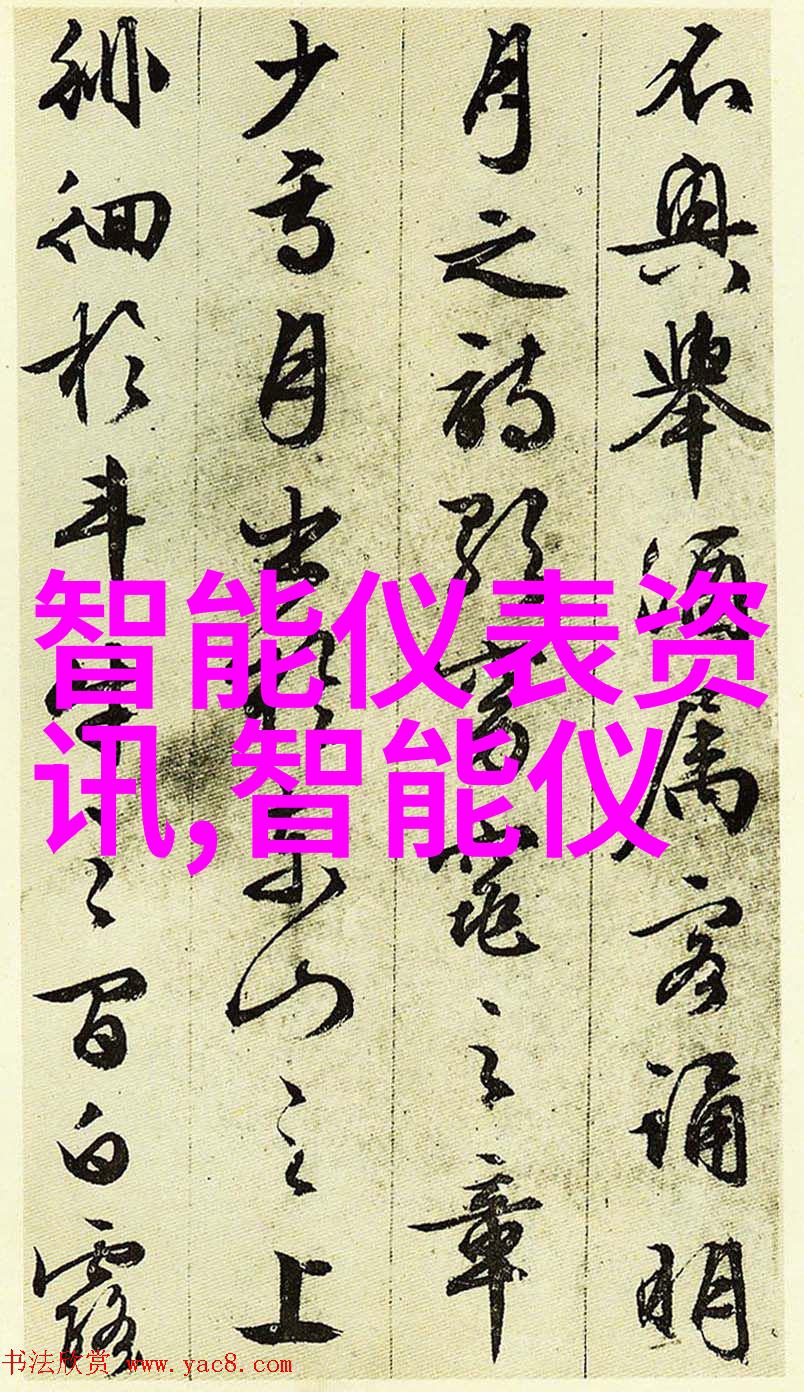 不興舉酒属客誦明
月之詩歌窈窕之章
少焉月出於東山之上
徘徊於斗牛之間白露
智能仪表资
讯,智能仪
书法欣赏 www.yac8.com